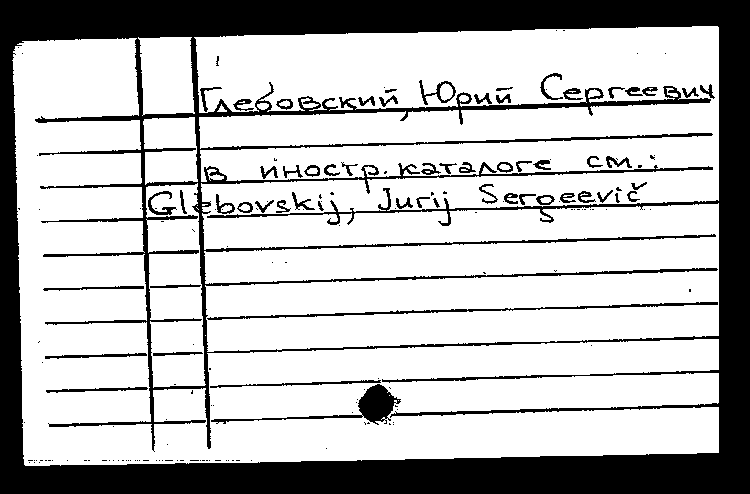 Глебовский, Юрий Сергеевич
в иностр. каталоге см.:
Glebovskij, Jurij Sergeevič